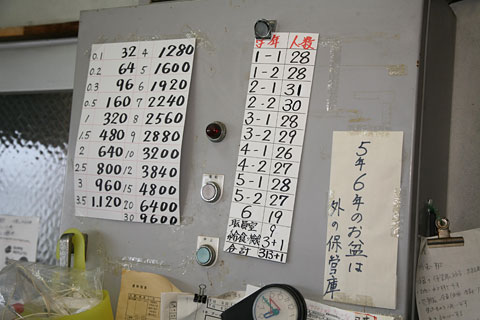 0.1 32 4 1280
0.2 64 5 1600
0.3 96 6 1920
0.5 160 7 2240
1 320 8 2560
1.5 480 9 2880
2 640 10 3200
2.5 800 12 3840
3 960 15 4800
3.5 1120 20 6400
30 9600
学年 人数
1-1 28
1-2 28
2-1 31
2-2 30
3-1 28
3-2 29
4-1 26
4-2 27
5-1 28
5-2 27
6 19
職員室 9
合計 313+1
5年6年のお盆は
外の保管庫